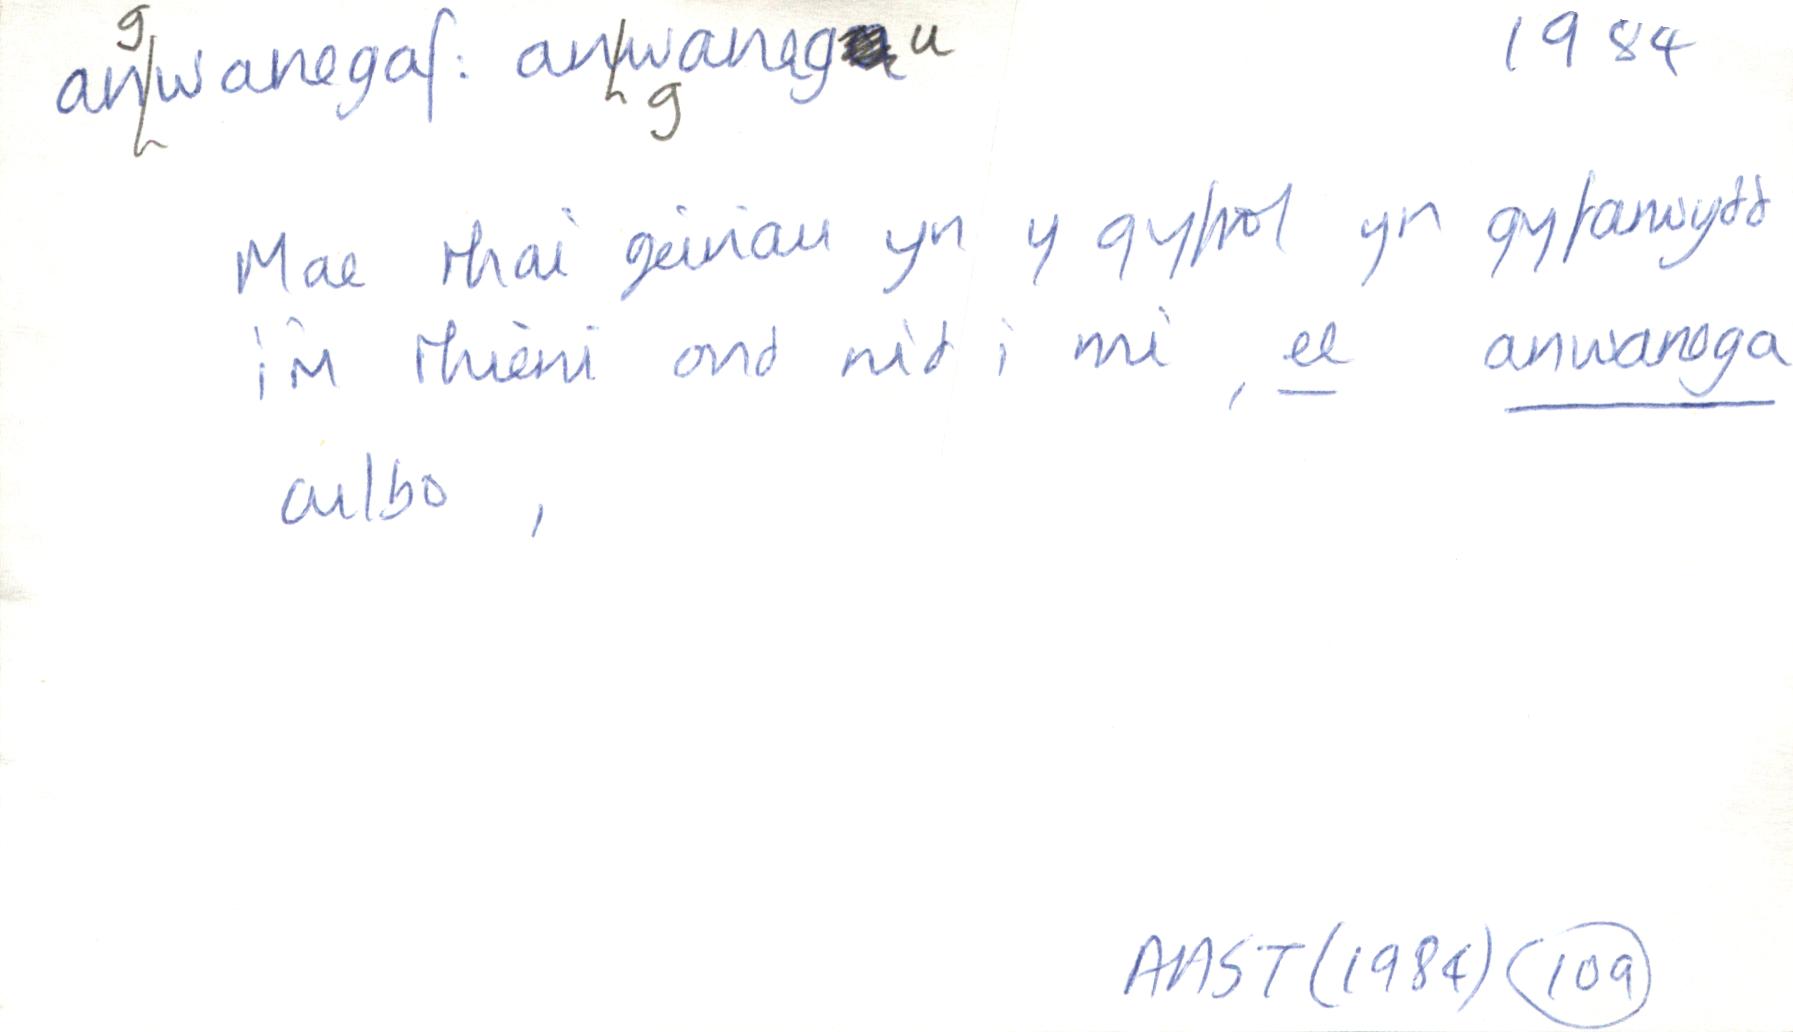 angwanegaf: angwanegu 1984
Mae rhai geiriau yn y gyfrol yn gyfarwydd
i'm rhieni ond nid i mi, ee anwanega
aulbo,
AAST (1984) 109